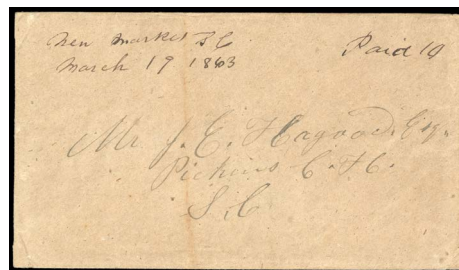 New Market S C
March 19 1863
Paid 10
Mr J. E. Hagood, Esq.
Pickens C. H.
S. C